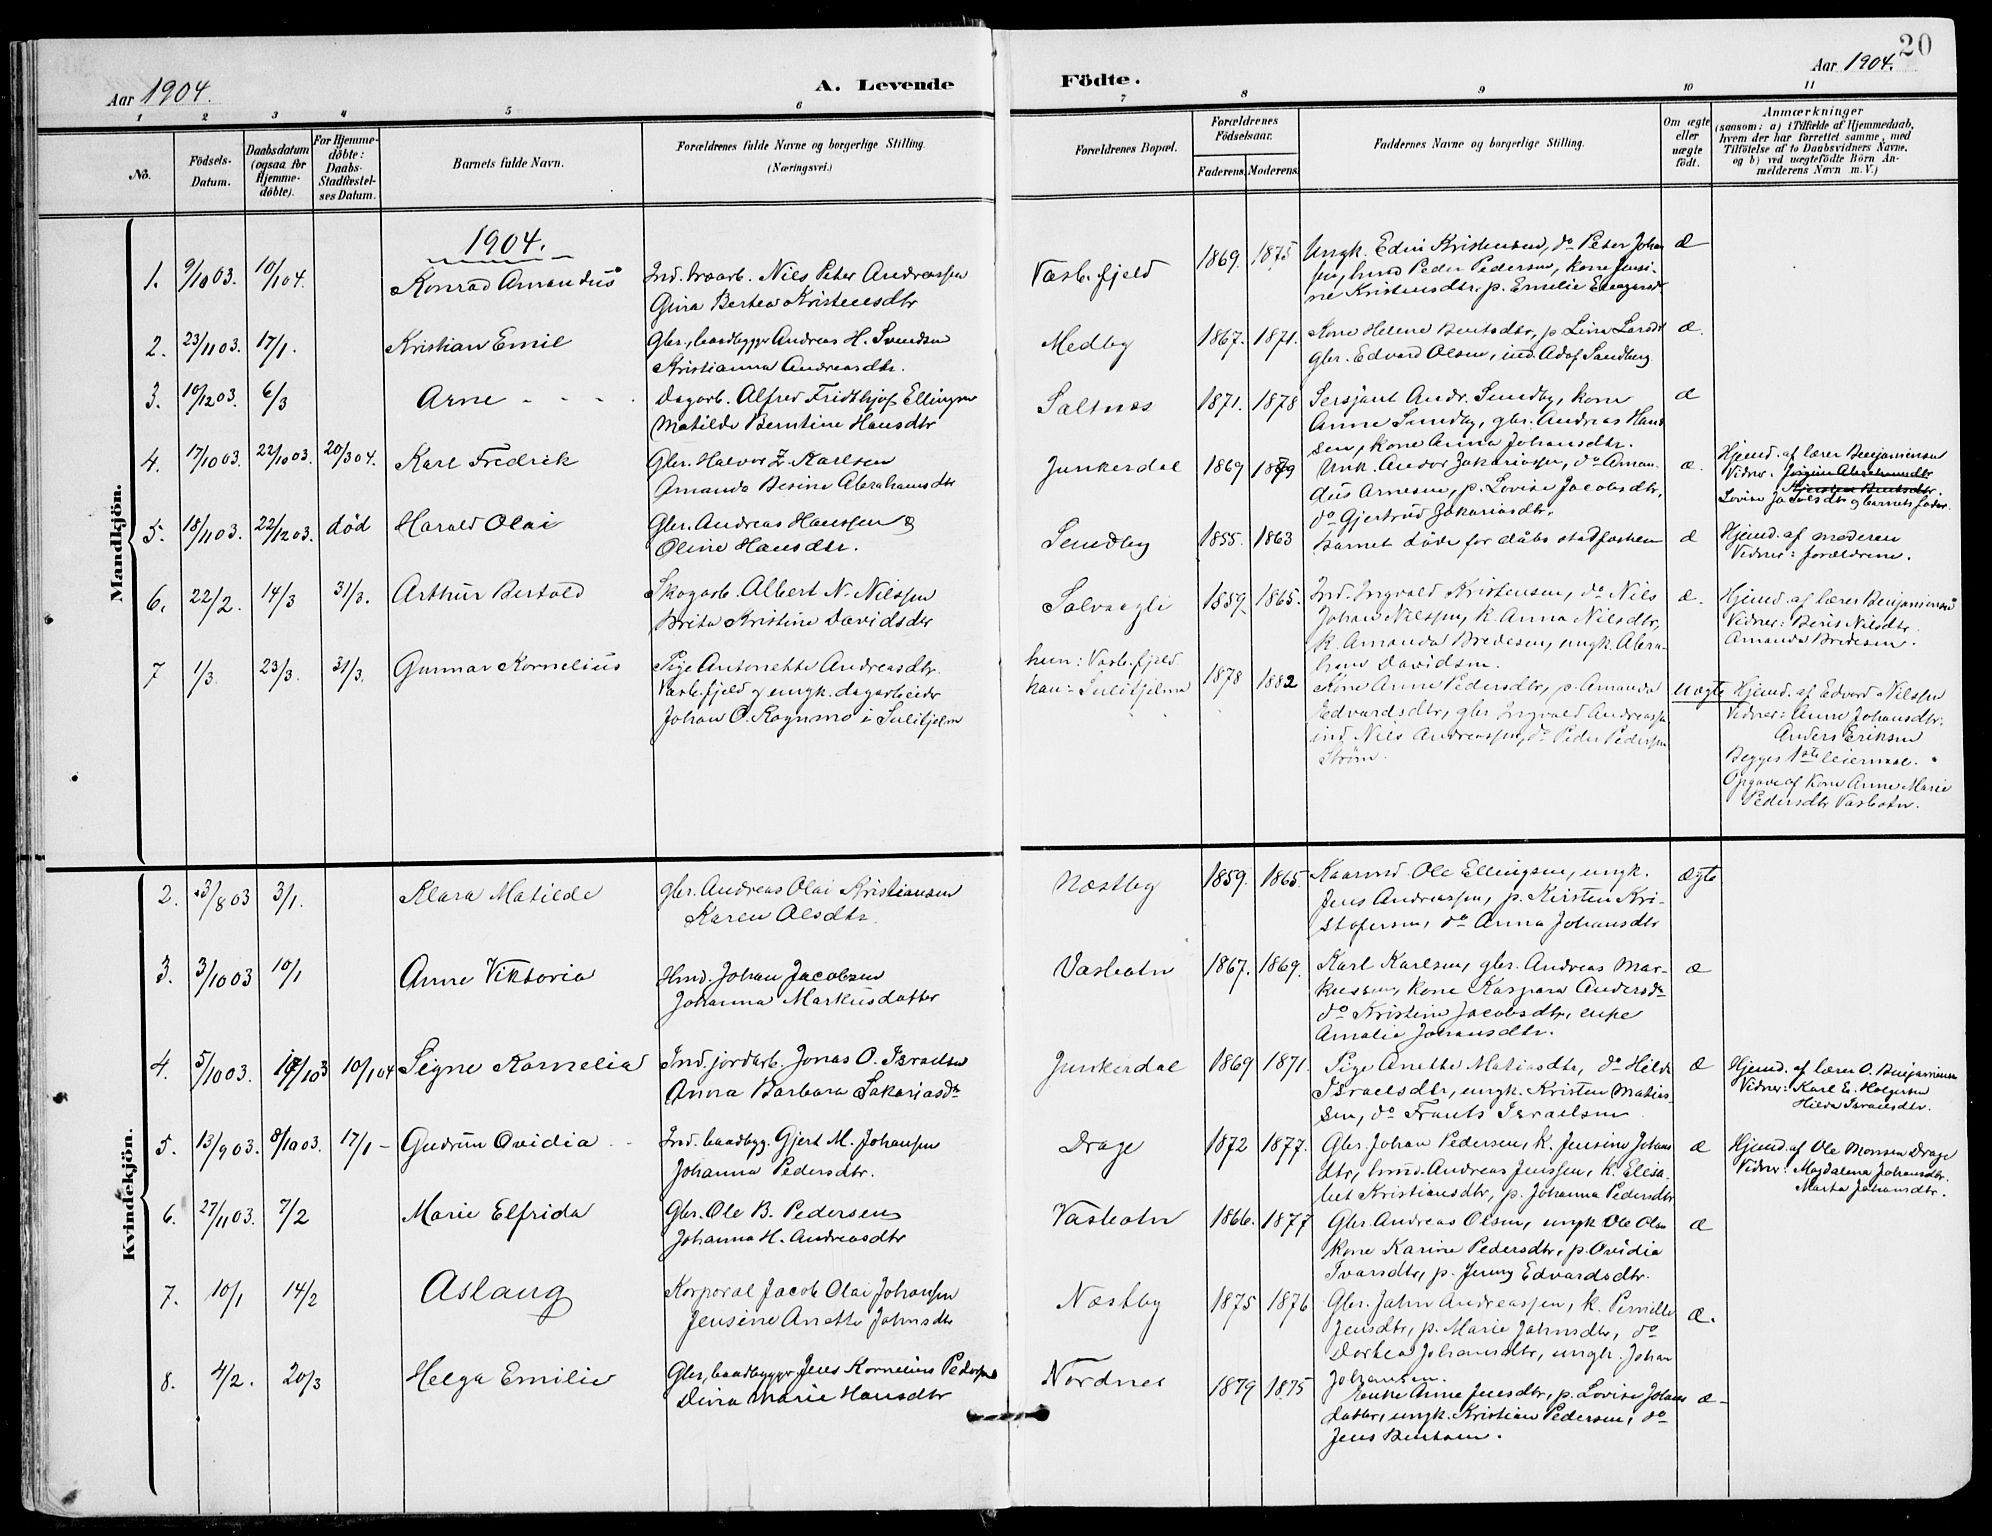 20
Aar 1904.
A. Levende
Födte.
Aar 1904.
1 2 3 4 5 6 7 8 9 10 11
No.
Födsels-
Datum.
Daabsdatum
(ogsaa for
Hjemme-
döbte).
For Hjemme-
döbte:
Daabs-
Stadfæstel-
ses Datum.
Barnets fulde Navn.
Forældrenes fulde Navne og borgerlige Stilling.
(Næringsvei.)
Forældrenes Bopæl.
Forældrenes
Födselsaar.
Faderens. Moderens.
Faddernes Navne og borgerlige Stilling.
Om ægte
eller
uægte
født.
Anmærkninger
(saasom: a) i Tilfælde af Hjemmedaab,
hvem der har forrettet samme, med
Tilföielse af to Daabsvidners Navne,
og b) ved uægtefödte Börn An-
melderens Navn m. V.)
Mandkjön.
1904.
1. 9/10 03. 10/1 04. Konrad Amandus
Ind. Nils Peter Andreassen
Gina Bertea Kristensdtr
Vasb.fjeld 1869. 1875
Ungk. Edin Kristensen, do Peter Johan
sen, Peder Pedersen, kone Jensi-
ne Kristensdtr. p. Emelie
æ
2. 23/11 03. 17/1. Kristian Emil
Gbr, baadbygger Andreas H. Svendsen
Kristianna Andreasdtr.
Medby 1867. 1871.
Kone Helene Berntsdtr, p Lina Larsdt
gbr. Edvard Olsen, ind. Adof Sandberg
æ.
3. 10/12 03. 6/3 Arne
Dagarb. Alfred Fridthjof Ellingsen
Matilde Berntine Hansdtr
Saltnes 1871. 1878
Sersjant Andr. Sundby, kone
Anne Sundby, gbr. Andreas Han
sen, kone Anna Johansdtr.
æ
4. 17/10 03. 22/10 03. 20/3 04. Karl Fredrik
Gbr. Halvor Z. Karlsen
Amanda Besine Abrahamsdtr
Junkerdal 1869 1879
Unk. Andor Zakariasen, do Aman
dus Arnesen, p. Lovise Jacobsdtr,
do Gjertrud Zakariasdtr.
æ.
Hjemd. af lærer Benjaminsen
Vidner.
Lovise Jacobsdtr og barnets fader.
5. 18/11 03. 22/12 03. død Harald Olai
Gbr. Andreas Hanssen &
Oline Hansdtr.
Sundby 1855. 1863
Barnet døde før dåbs stadfæstelsen
æ
Hjemd. af moderen
Vidner: forældrene.
6. 22/2. 14/3 31/3. Arthur Bertold
Skogarb. Albert N. Nilssen
Brita Kristine Davidsdtr
Solvaagli 1859. 1865.
Ind. Ingvald Kristensen, do Nils
Johan Nilssen, k. Anna Nilsdtr,
k. Amanda Bredesen, ungk. Abra-
ham Davidsen.
æ.
Hjemd. af lærer Benjaminsen
Vidner: Beris Nilsdtr.
Amanda Bredesen.
7 1/3. 23/3. 31/3. Gunnar Kornelius
Pige Antonette Andreasdtr.
Vasb.fjeld og ungk. dagarbeider
Johan O. Rognmo i Sulitjelma
hun: Vasb.fjeld
han: Sulitjelma
1878 1882
Kone Anne Pedersdtr, p. Amanda
Edvardsdtr, gbr Ingvald Andreassen
ind. Nils Andreassen, do Peder Pedersen
Strøm.
uægte
Hjemd. af Edvard Nilssen
Vidner: Anne Johansdtr.
Anders Eriksen
Begges 1ste leiermaal.
Opgave af kone Anne Marie
Pedersdtr Vasbotn.
Kvindekjön.
2. 3/8 03 3/1. Klara Matilde
gbr. Andreas Olai Kristiansen
Karen Olsdtr.
Næstby 1859. 1865.
Kaarmd. Ole Ellingsen, ungk.
Jens Andreassen, p. Kirsten Kri-
stofersen, do Anna Johansdtr
ægte
3. 3/10 03 10/1 Anne Viktoria
Hmd. Johan Jacobsen
Johanna Markusdatter
Vasbotn 1867. 1869.
Karl Karlsen, gbr. Andreas Mar-
kussen, kone Kaspara Andersdtr
do Kristine Jacobsdtr, enke
Amalia Johansdtr.
æ
4. 5/10 03. 17/10 3 10/1 04 Signe Kornelia
Ind. jordarb. Jonas O. Israelsen
Anna Barbara Sakariasdtr
Junkerdal 1869 1871.
Pige Anette Matiasdtr, do Hilda
Israelsdtr, ungk. Kristen Matias-
sen, do Frants Israelsen
æ
Hjemd. af lærer O. Benjaminsen
Vidner: Karl E. Holgersen
Hilda Israelsdtr.
5. 13/9 03. 8/10 03. 17/1 - Gudrun Ovidia
Ind. baadbyg. Gjert M. Johansen
Johanna Pedersdtr.
Drage 1872 1877.
Gbr. Johan Pedersen, k. Jensine Johans
dtr, hmd. Andreas Jenssen, k. Elisa-
bet Kristiansdtr, p. Johanna Pedersdtr
æ
Hjemd. af Ole Monsen Drage
Vidner: Magdalena Johansdtr.
Marta Johansdtr.
6. 27/11 03. 7/2 Marie Elfrida
Gbr. Ole B. Pedersen
Johanna H. Andreasdtr
Vasbotn 1866. 1877
Gbr. Andreas Olsen, ungk Ole Olsen
kone Karine Pedersdtr, p. Ovidia
Ivarsdtr, p. Jenny Edvardsdtr.
æ
7. 10/1 14/2 Aslaug
Korporal Jacob Olai Johansen
Jensine Anette Jahnsdtr
Næstby 1875 1876
Gbr. Jahn Andreassen, k. Pernille
Jensdtr, p. Marie Jahnsdtr, do
Dortea Johansdtr, ungk. Johan
Johansen.
æ.
8. 4/2. 20/3 Helga Emilie
Gbr, baadbygger Jens Kornelius Pedersen
Dina Marie Hansdtr
Nordnes 1879 1875
Enke Anne Jensdtr, p. Lovise Johans
datter, ungk. Kristian Pedersen, do
Jens Bentsen.
æ -